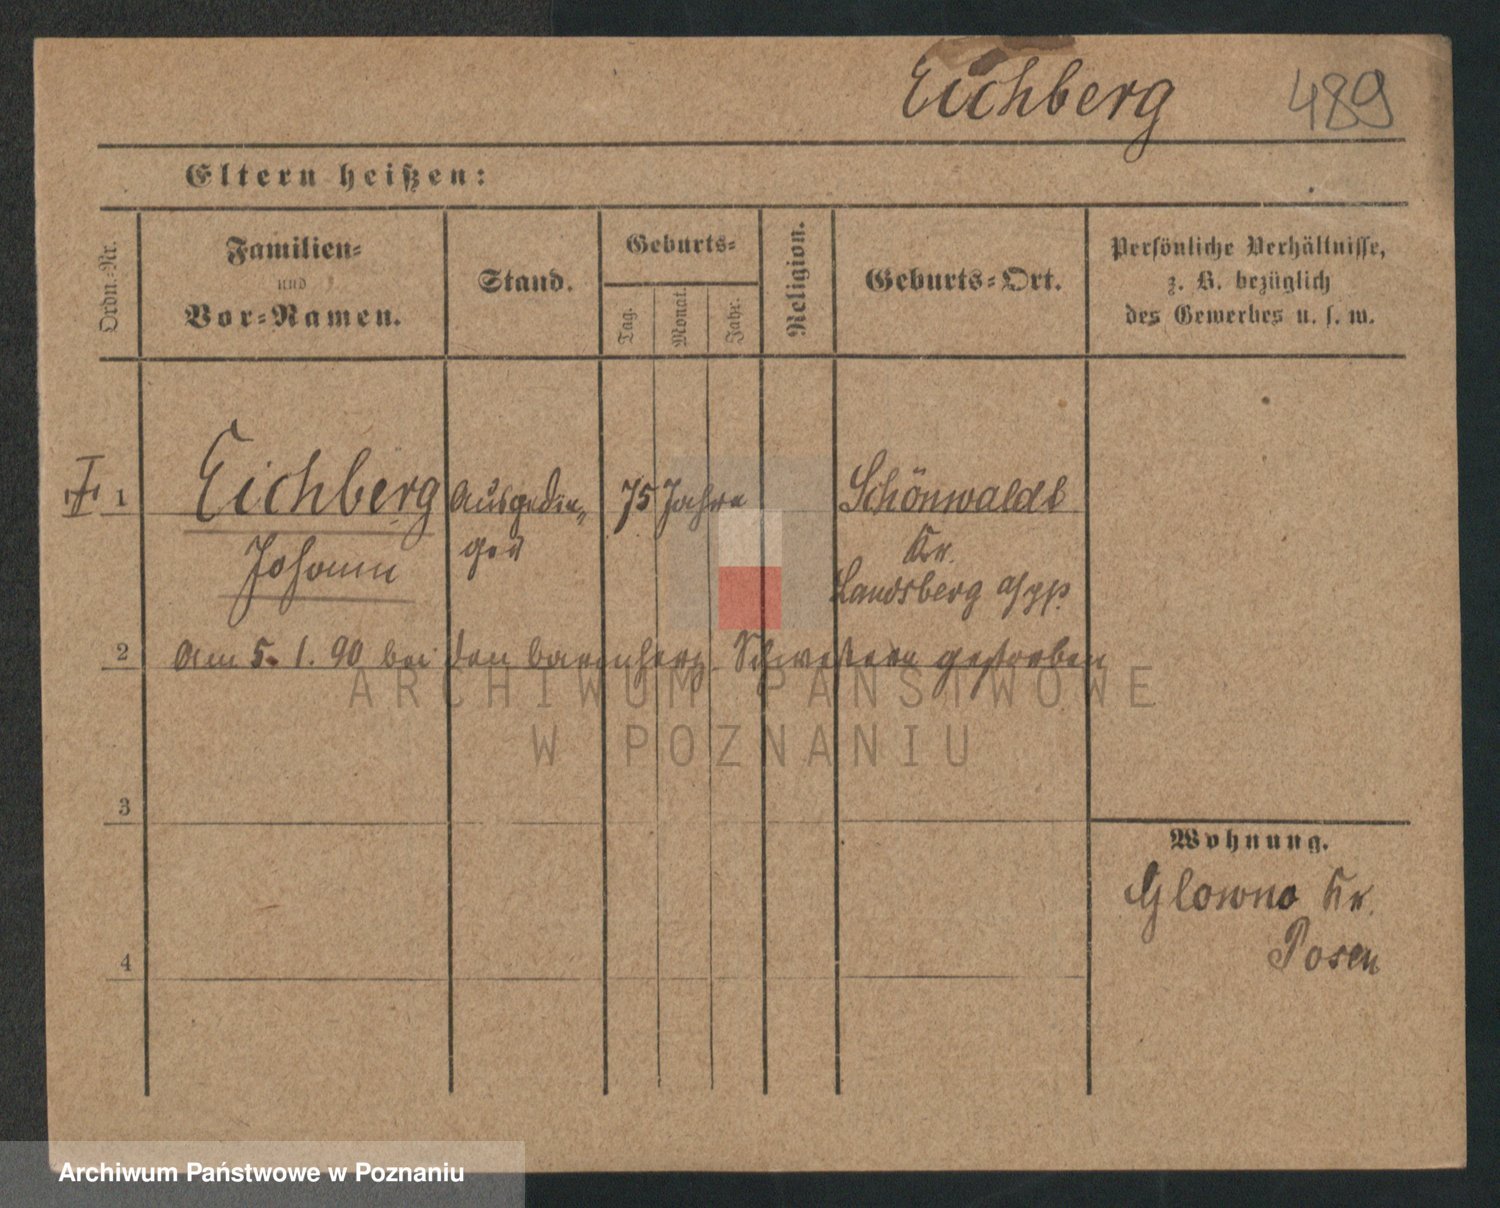 Eichberg 489
Eltern heißen:
Ordn.-Nr.
Familien-
und
Vor-Namen.
Stand.
Geburts-
Tag.
Monat.
Jahr.
Religion.
Geburts-Ort.
Persönliche Verhältnisse,
z. B. bezüglich
des Gewerbes u. s. w.
1 Eichberg Ausgedin- 75 Jahre Schönwalde
Johann ger Kr.
Landsberg
2 Am 5. 1. 90 bei den barmherz. Schwestern gestorben
ARCHIWUM PAŃSTWOWE
W POZNANIU
3
Wohnung.
Glowno Kr.
Posen
4
Archiwum Państwowe w Poznaniu